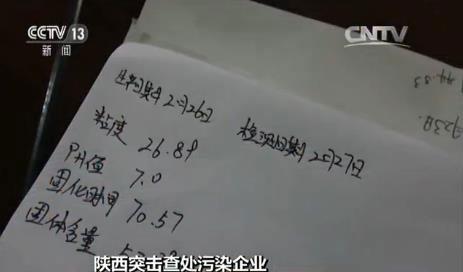 CCTV 13
新闻
CNTV
生产日期 2月26日
检测日期 2月27日
粘度 26.89
PH值 7.0
固化时间 70.57
固体含量
陕西突击查处污染企业